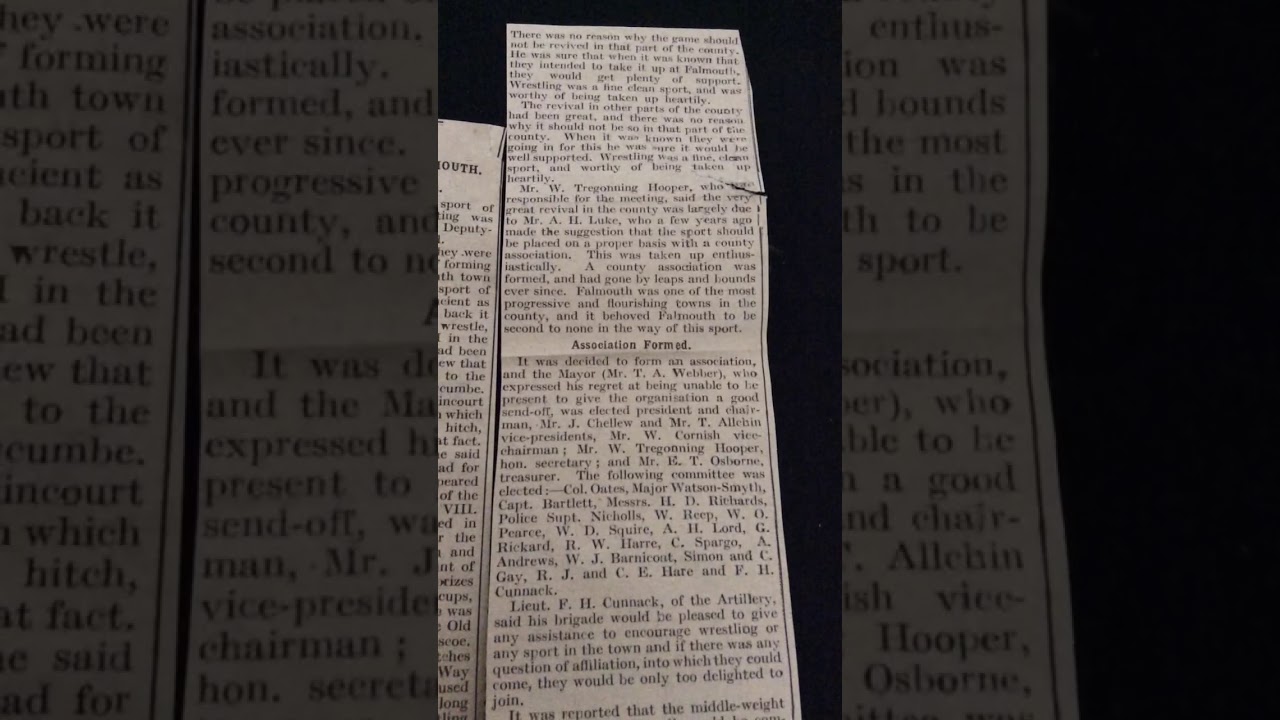 OUTH.
sport of
ting was
Deputy-
hey were
forming
th town
sport of
cient as
back it
wrestle,
in the
ad been
ew that
to the
cumbe.
incourt
which
hitch,
at fact.
e said
ad for
peared
of the
VIII.
ed in
r the
and
nt of
rizes
cups,
was
Old
scoe.
ches
Way
used
long
There was no reason why the game should
not be revived in that part of the county.
He was sure that when it was known that
they intended to take it up at Falmouth,
they would get plenty of support.
Wrestling was a fine clean sport, and was
worthy of being taken up heartily.
The revival in other parts of the county
had been great, and there was no reason
why it should not be so in that part of the
county. When it was known they were
going in for this he was sure it would be
well supported. Wrestling was a fine, clean
sport, and worthy of being taken up
heartily.
Mr. W. Tregonning Hooper, who was
responsible for the meeting, said the very
great revival in the county was largely due
to Mr. A. H. Luke, who a few years ago
made the suggestion that the sport should
be placed on a proper basis with a county
association. This was taken up enthus-
iastically. A county association was
formed, and had gone by leaps and bounds
ever since. Falmouth was one of the most
progressive and flourishing towns in the
county, and it behoved Falmouth to be
second to none in the way of this sport.
Association Formed.
It was decided to form an association,
and the Mayor (Mr. T. A. Webber), who
expressed his regret at being unable to be
present to give the organisation a good
send-off, was elected president and chair-
man, Mr. J. Chellew and Mr. T. Allchin
vice-presidents, Mr. W. Cornish vice-
chairman; Mr. W. Tregonning Hooper,
hon. secretary; and Mr. E. T. Osborne,
treasurer. The following committee was
elected:—Col. Oates, Major Watson-Smyth,
Capt. Bartlett, Messrs. H. D. Richards,
Police Supt. Nicholls, W. Reep, W. O.
Pearce, W. D. Squire, A. H. Lord, G.
Rickard, R. W. Harre, C. Spargo, A.
Andrews, W. J. Barnicoat, Simon and C.
Gay, R. J. and C. E. Hare and F. H.
Cunnack.
Lieut. F. H. Cunnack, of the Artillery,
said his brigade would be pleased to give
any assistance to encourage wrestling or
any sport in the town and if there was any
question of affiliation, into which they could
come, they would be only too delighted to
join.
It was reported that the middle-weight